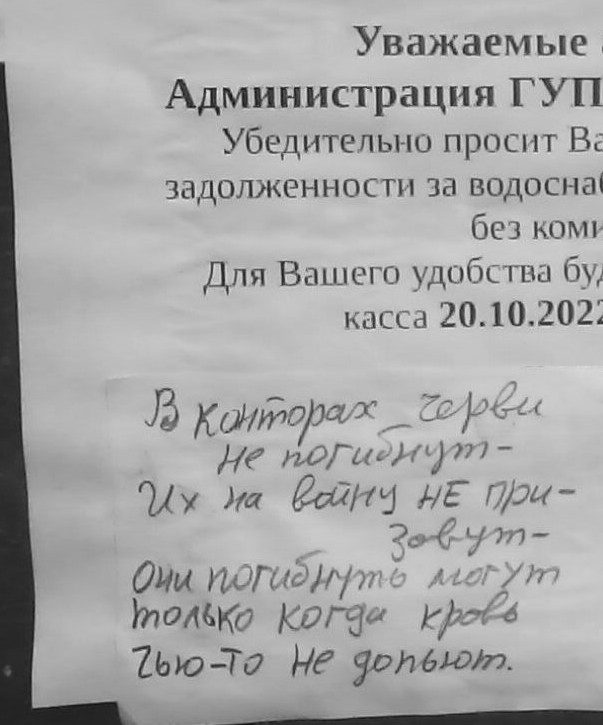 Уважаемые
Администрация ГУП
Убедительно просит Ва
задолженности за водоснаб
без коми
Для Вашего удобства буд
касса 20.10.2022
В конторах черви
не погибнут-
Их на войну НЕ при-
зовут-
Они погибнуть могут
только когда кровь
Чью-то не допьют.